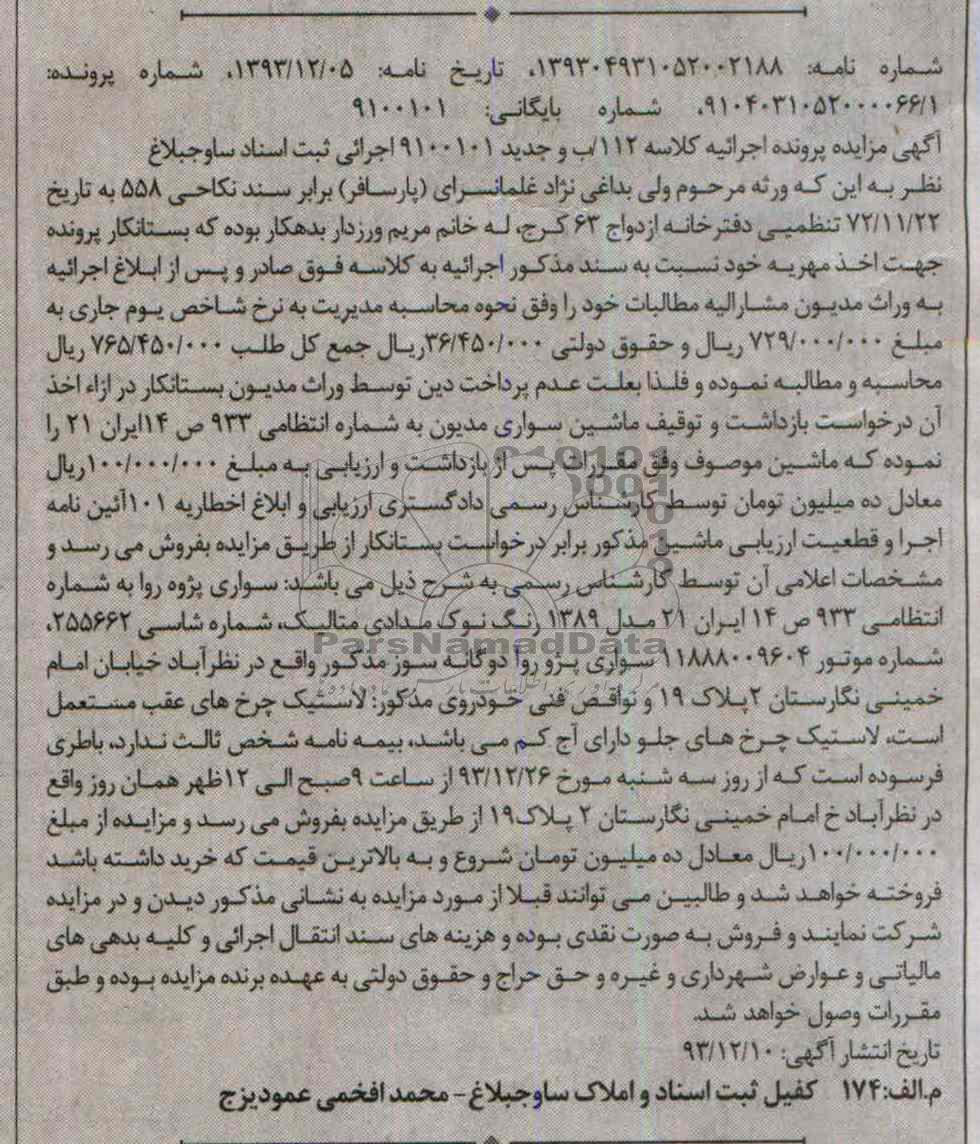 شماره نامه: ۱۳۹۳۰۴۹۳۱۰۵۲۰۰۲۱۸۸، تاریخ نامه: ۱۳۹۳/۱۲/۰۵، شماره پرونده:
۹۱۰۴۰۳۱۰۵۲۰۰۰۰۶۶/۱، شماره بایگانی: ۹۱۰۰۱۰۱
آگهی مزایده پرونده اجرائیه کلاسه ۱۱۲/ب و جدید ۹۱۰۰۱۰۱ اجرائی ثبت اسناد ساوجبلاغ
نظر به این که ورثه مرحوم ولی بداغی نژاد غلمانسرای (پارسافر) برابر سند نکاحی ۵۵۸ به تاریخ
۷۲/۱۱/۲۲ تنظمیی دفترخانه ازدواج ۶۳ کرج، له خانم مریم ورزدار بدهکار بوده که بستانکار پرونده
جهت اخذ مهریه خود نسبت به سند مذکور اجرائیه به کلاسه فوق صادر و پس از ابلاغ اجرائیه
به وراث مدیون مشارالیه مطالبات خود را وفق نحوه محاسبه مدیریت به نرخ شاخص یوم جاری به
مبلغ ۷۲۹/۰۰۰/۰۰۰ ریال و حقوق دولتی ۳۶/۴۵۰/۰۰۰ریال جمع کل طلب ۷۶۵/۴۵۰/۰۰۰ ریال
محاسبه و مطالبه نموده و فلذا بعلت عدم پرداخت دین توسط وراث مدیون بستانکار در ازاء اخذ
آن درخواست بازداشت و توقیف ماشین سواری مدیون به شماره انتظامی ۹۳۳ ص ۱۴ایران ۲۱ را
نموده که ماشین موصوف وفق مقررات پس از بازداشت و ارزیابی به مبلغ ۱۰۰/۰۰۰/۰۰۰ریال
معادل ده میلیون تومان توسط کارشناس رسمی دادگستری ارزیابی و ابلاغ اخطاریه ۱۰۱آئین نامه
اجرا و قطعیت ارزیابی ماشین مذکور برابر درخواست بستانکار از طریق مزایده بفروش می رسد و
مشخصات اعلامی آن توسط کارشناس رسمی به شرح ذیل می باشد: سواری پژوه روا به شماره
انتظامی ۹۳۳ ص ۱۴ ایران ۲۱ مدل ۱۳۸۹ رنگ نوک مدادی متالیک، شماره شاسی ۲۵۵۶۶۲،
شماره موتور ۱۱۸۸۸۰۰۹۶۰۴ سواری پژو روآ دوگانه سوز مذکور واقع در نظرآباد خیابان امام
خمینی نگارستان ۲پلاک ۱۹ و نواقص فنی خودروی مذکور: لاستیک چرخ های عقب مستعمل
است، لاستیک چرخ های جلو دارای آج کم می باشد، بیمه نامه شخص ثالث ندارد، باطری
فرسوده است که از روز سه شنبه مورخ ۹۳/۱۲/۲۶ از ساعت ۹صبح الی ۱۲ظهر همان روز واقع
در نظرآباد خ امام خمینی نگارستان ۲ پلاک۱۹ از طریق مزایده بفروش می رسد و مزایده از مبلغ
۱۰۰/۰۰۰/۰۰۰ریال معادل ده میلیون تومان شروع و به بالاترین قیمت که خرید داشته باشد
فروخته خواهد شد و طالبین می توانند قبلا از مورد مزایده به نشانی مذکور دیدن و در مزایده
شرکت نمایند و فروش به صورت نقدی بوده و هزینه های سند انتقال اجرائی و کلیه بدهی های
مالیاتی و عوارض شهرداری و غیره و حق حراج و حقوق دولتی به عهده برنده مزایده بوده و طبق
مقررات وصول خواهد شد.
تاریخ انتشار آگهی: ۹۳/۱۲/۱۰
م.الف:۱۷۴ کفیل ثبت اسناد و املاک ساوجبلاغ - محمد افخمی عمودیزج
ParsNamadData